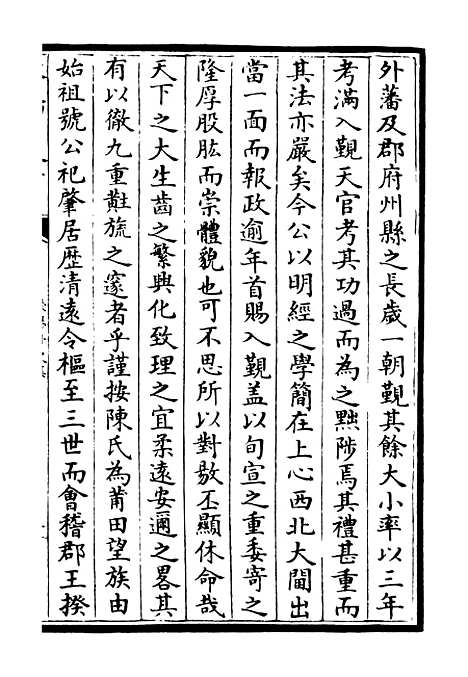 外藩及郡府州縣之長歲一朝覲其餘大小率以三年
考滿入覲天官考其功過而為之黜陟焉其禮甚重而
其法亦嚴矣今公以明經之學簡在上心西北大閫出
當一面而報政逾年首賜入覲盖以旬宣之重委寄之
隆厚股肱而崇體貌也可不思所以對敭丕顯休命哉
天下之大生齒之繁興化致理之宜柔遠安邇之畧其
有以徹九重黈旒之邃者乎謹按陳氏為莆田望族由
始祖號公祀肇居歴清遠令樞至三世而會稽郡王揆